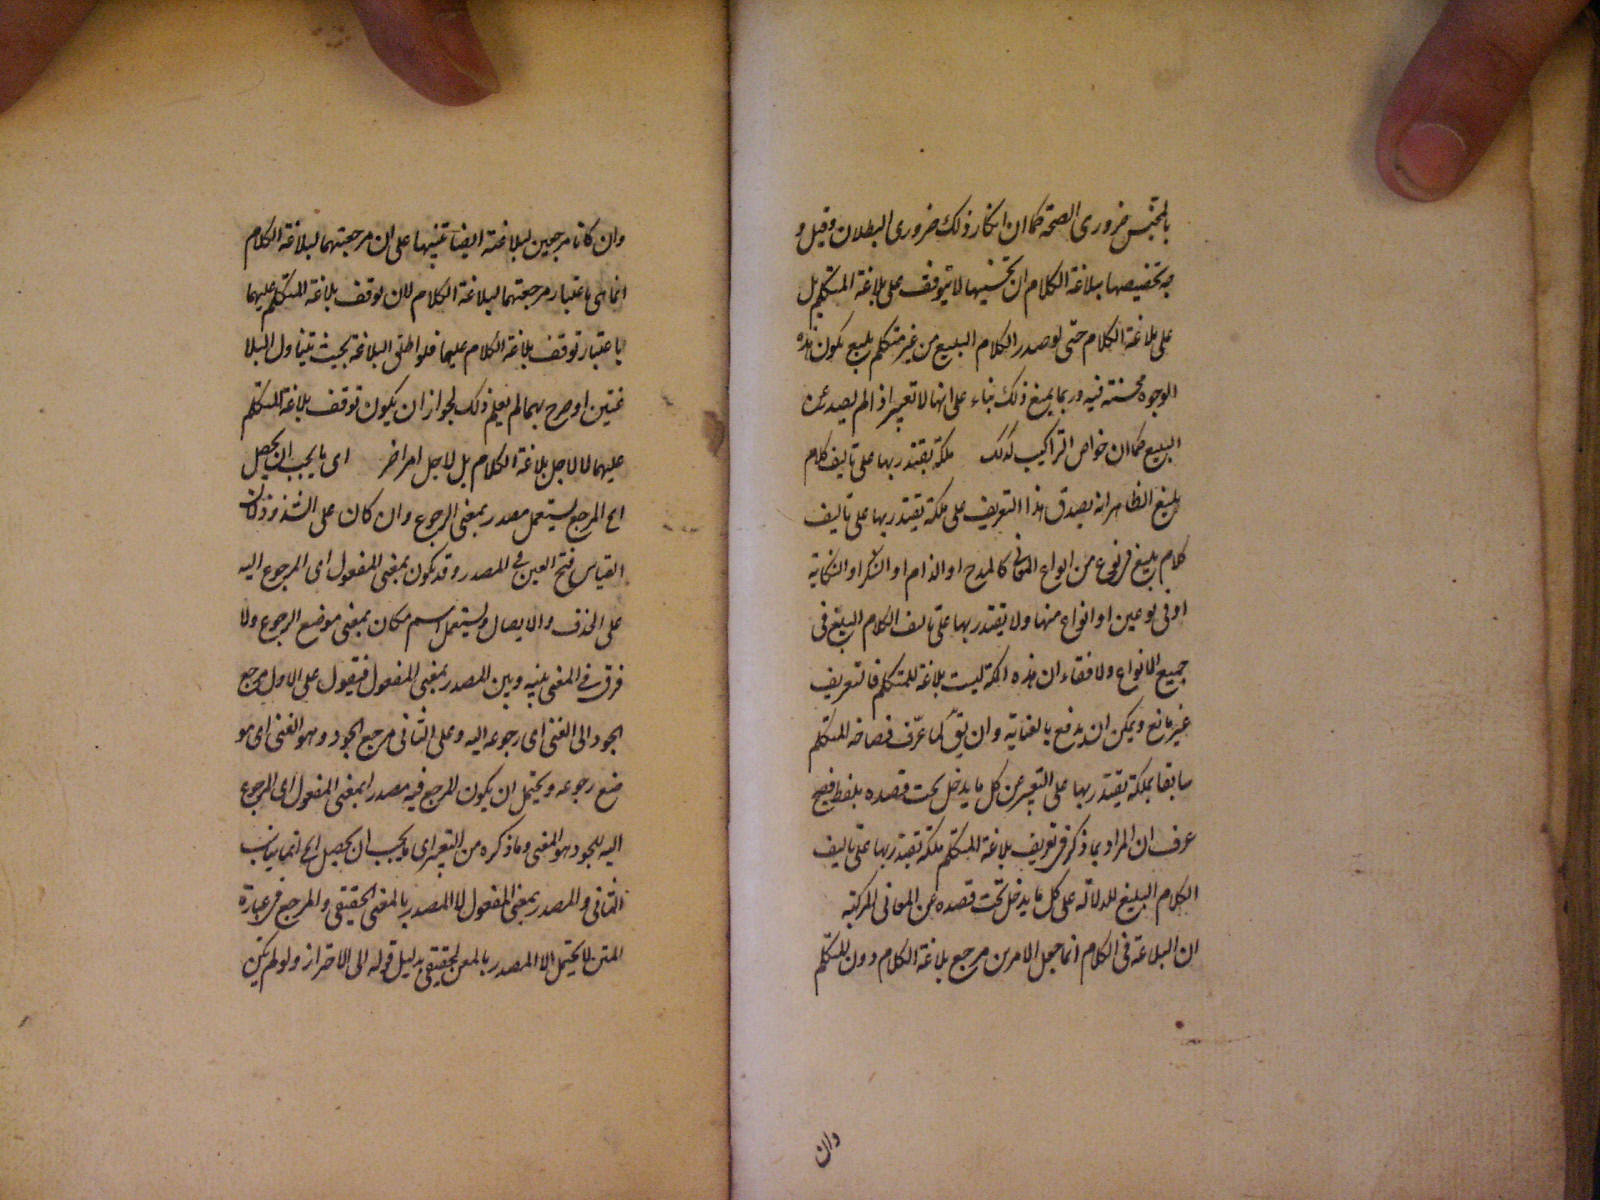 بالمحبس ضرورى الصحة كما ان انكار ذلك ضرورى البطلان وقيل و
جه تخصيصها ببلاغة الكلام ان تحسينها لا يتوقف على بلاغة المتكلم بل
على بلاغة الكلام حتى لو صدر الكلام البليغ من غير متكلم بليغ يكون هذه
الوجوه محسنة فيه وربما يمنع ذلك بناء على انها لا تعتبر اذا لم يصدر عن
البليغ كما ان خواص التراكيب كذلك ملكة يقتدر بها على تاليف كلام
بليغ الظاهر انه يصدق هذا التعريف على ملكة يقتدر بها على تاليف
كلام بليغ فى نوع من انواع المعانى كالمدح او الذم او الشكر او الشكاية
او فى نوعين او انواع منها ولا يقتدر بها على تاليف الكلام البليغ فى
جميع الانواع ولا خفاء ان هذه الملكة ليست بلاغة للمتكلم فالتعريف
غير مانع ويمكن ان يدفع بالعناية وان يق لما عرف فصاحة المتكلم
سابقا بملكة يقتدر بها على التعبير عن كل ما يدخل تحت قصده بلفظ فصيح
عرف ان المراد بما ذكر فى تعريف بلاغة المتكلم ملكة يقتدر بها على تاليف
الكلام البليغ للدلالة على كل ما يدخل تحت قصده من المعانى المركبة
ان البلاغة فى الكلام انما جعل الامرين مرجع بلاغة الكلام دون المتكلم
وان
وان كانا مرجعين لبلاغته ايضا تنبيها على ان مرجعيتهما لبلاغة الكلام
انما هى باعتبار مرجعيتهما لبلاغة الكلام لان توقف بلاغة المتكلم عليهما
باعتبار توقف بلاغة الكلام عليهما فلو اطلق البلاغة بحيث يتناول البلا
غتين او صرح بهما لم يعلم ذلك لجواز ان يكون توقف بلاغة المتكلم
عليهما لا لاجل بلاغة الكلام بل لاجل امر اخر اى ما يجب ان يحصل
اه المرجع يستعمل مصدر بمعنى الرجوع وان كان على الشذوذ لان
القياس فتح العين فى المصدر وقد يكون بمعنى المفعول اى المرجوع اليه
على الحذف والايصال ويستعمل اسم مكان بمعنى موضع الرجوع ولا
فرق فى المعنى بينه وبين المصدر بمعنى المفعول فيقول على الاول مرجع
الجود الى الغنى اى رجوعه اليه وعلى الثانى مرجع الجود وهو الغنى اى مو
ضع رجوعه ويحتمل ان يكون المرجع فيه مصدرا بمعنى المفعول اى المرجوع
اليه للجود هو الغنى وما ذكره من التعبير اى ما يجب ان يحصل اه انما يناسب
الثانى والمصدر بمعنى المفعول لا المصدر بالمعنى الحقيقى والمرجع فى عبارة
المتن لا يحتمل الا المصدر بالمعنى الحقيقى بدليل قوله الى الاحتراز ولو لم يكن